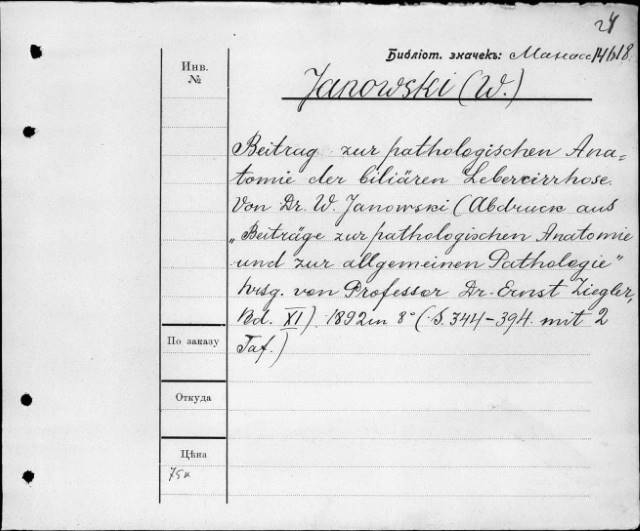 24
Библіот. значекъ: Манасс 14618
Инв.
№
Janowski (W.)
Beitrag zur pathologischen Ana=
tomie der biliären Lebercirrhose.
Von Dr. W. Janowski (Abdruck aus
„Beiträge zur pathologischen Anatomie
und zur allgemeinen Pathologie"
hrsg. von Professor Dr. Ernst Ziegler,
Bd. XI). 1892 in 8° (S. 344-394 mit 2
Taf.)
По заказу
Откуда
Цѣна
75к